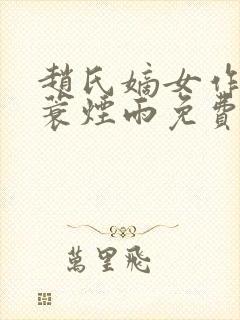 趙氏嫡女作
蓑煙雨免費
萬里飛